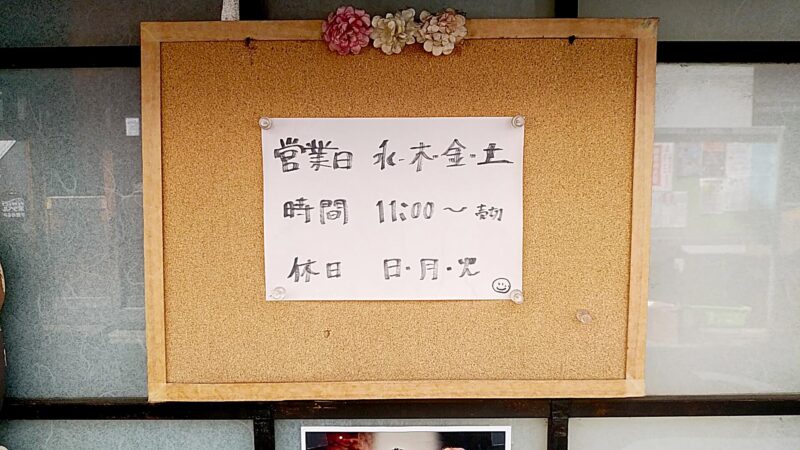 営業日 水・木・金・土
時間 11:00～売切
休日 日・月・火